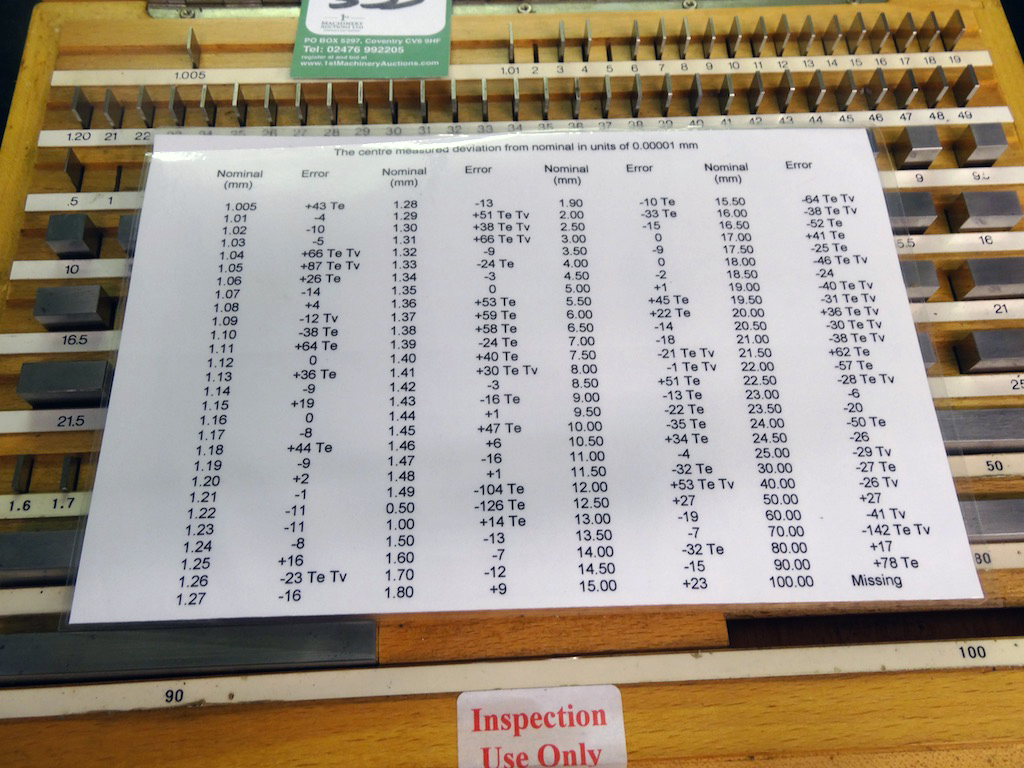 1st
MACHINERY
AUCTIONS LTD
PO BOX 5297, Coventry CV6 9HF
Tel: 02476 992205
register at and bid at
www.1stMachineryAuctions.com
1.005 1.01 2 3 4 5 6 7 8 9 10 11 12 13 14 15 16 17 18 19
1.20 21 22 23 24 25 26 27 28 29 30 31 32 33 34 35 36 37 38 39 40 41 42 43 44 45 46 47 48 49
.5 1 9
10 5.5 16
16.5 21
21.5
50
1.6 1.7
80
The centre measured deviation from nominal in units of 0.00001 mm
Nominal (mm) Error Nominal (mm) Error Nominal (mm) Error Nominal (mm) Error
1.005 +43 Te 1.28 -13 1.90 -10 Te 15.50 -64 Te Tv
1.01 -4 1.29 +51 Te Tv 2.00 -33 Te 16.00 -38 Te Tv
1.02 -10 1.30 +38 Te Tv 2.50 -15 16.50 -52 Te
1.03 -5 1.31 +66 Te Tv 3.00 0 17.00 +41 Te
1.04 +66 Te Tv 1.32 -9 3.50 -9 17.50 -25 Te
1.05 +87 Te Tv 1.33 -24 Te 4.00 0 18.00 -46 Te Tv
1.06 +26 Te 1.34 -3 4.50 -2 18.50 -24
1.07 -14 1.35 0 5.00 +1 19.00 -40 Te Tv
1.08 +4 1.36 +53 Te 5.50 +45 Te 19.50 -31 Te Tv
1.09 -12 Tv 1.37 +59 Te 6.00 +22 Te 20.00 +36 Te Tv
1.10 -38 Te 1.38 +58 Te 6.50 -14 20.50 -30 Te Tv
1.11 +64 Te 1.39 -24 Te 7.00 -18 21.00 -38 Te Tv
1.12 0 1.40 +40 Te 7.50 -21 Te Tv 21.50 +62 Te
1.13 +36 Te 1.41 +30 Te Tv 8.00 -1 Te Tv 22.00 -57 Te
1.14 -9 1.42 -3 8.50 +51 Te 22.50 -28 Te Tv
1.15 +19 1.43 -16 Te 9.00 -13 Te 23.00 -6
1.16 0 1.44 +1 9.50 -22 Te 23.50 -20
1.17 -8 1.45 +47 Te 10.00 -35 Te 24.00 -50 Te
1.18 +44 Te 1.46 +6 10.50 +34 Te 24.50 -26
1.19 -9 1.47 -16 11.00 -4 25.00 -29 Tv
1.20 +2 1.48 +1 11.50 -32 Te 30.00 -27 Te
1.21 -1 1.49 -104 Te 12.00 +53 Te Tv 40.00 -26 Tv
1.22 -11 0.50 -126 Te 12.50 +27 50.00 +27
1.23 -11 1.00 +14 Te 13.00 -19 60.00 -41 Tv
1.24 -8 1.50 -13 13.50 -7 70.00 -142 Te Tv
1.25 +16 1.60 -7 14.00 -32 Te 80.00 +17
1.26 -23 Te Tv 1.70 -12 14.50 -15 90.00 +78 Te
1.27 -16 1.80 +9 15.00 +23 100.00 Missing
100
90
Inspection
Use Only